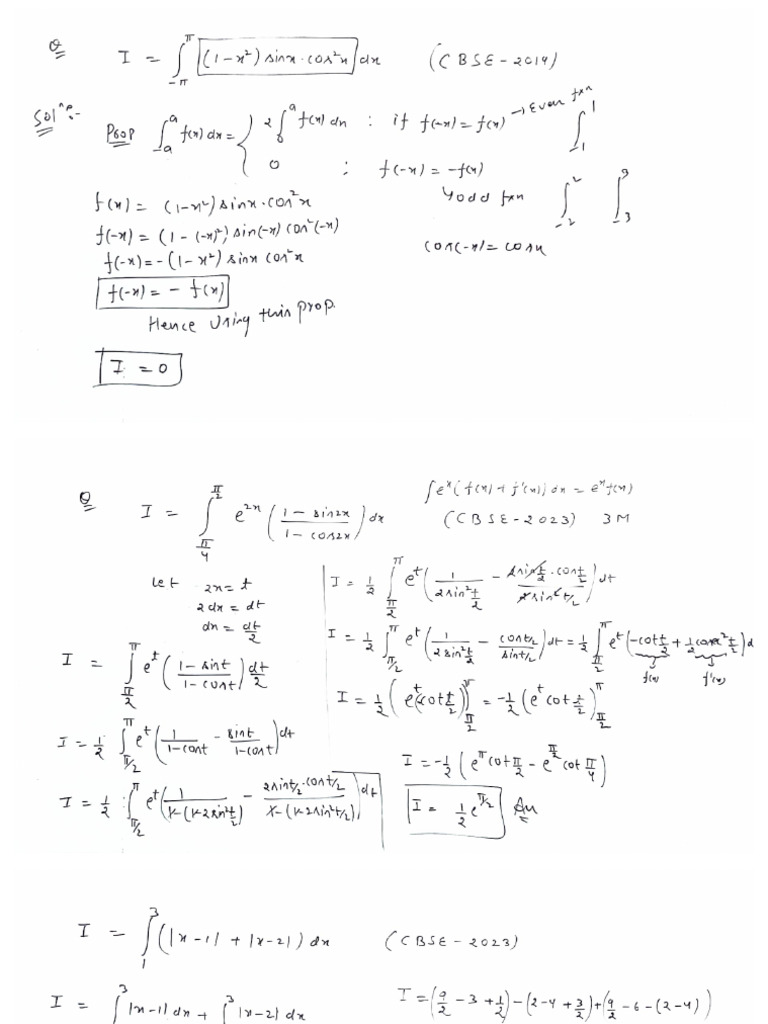 Q I = ∫_{-π}^{π} (1-x²) sinx·cos²x dx (CBSE-2019)
Solⁿ:-
Prop ∫_{-a}^{a} f(x) dx = { 2∫_{0}^{a} f(x) dx : if f(-x) = f(x) → Even fxn ∫_{-1}^{1}
0 ; f(-x) = -f(x)
odd fxn ∫_{-2}^{2} ∫_{-3}^{3}
f(x) = (1-x²) sinx·cos²x
f(-x) = (1-(-x)²) sin(-x) cos²(-x)
cos(-x) = cosx
f(-x) = -(1-x²) sinx cos²x
f(-x) = - f(x)
Hence using this prop.
I = 0
Q I = ∫_{π/4}^{π/2} e^{2x} ( (1-sin2x)/(1-cos2x) ) dx
∫e^x(f(x)+f'(x)) dx = e^x f(x)
(CBSE-2023) 3M
Let 2x = t
2dx = dt
dx = dt/2
I = ∫_{π/2}^{π} e^t ( (1-sint)/(1-cost) ) dt/2
I = 1/2 ∫_{π/2}^{π} e^t ( 1/(1-cost) - sint/(1-cost) ) dt
I = 1/2 ∫_{π/2}^{π} e^t ( 1/(1-(1-2sin²t/2)) - 2sint/2·cost/2/(1-(1-2sin²t/2)) ) dt
I = 1/2 ∫_{π/2}^{π} e^t ( 1/(2sin²t/2) - 2sint/2·cost/2/(2sin²t/2) ) dt
I = 1/2 ∫_{π/2}^{π} e^t ( 1/(2sin²t/2) - (cost/2)/(sint/2) ) dt = 1/2 ∫_{π/2}^{π} e^t ( -cott/2 + 1/2 cosec²t/2 ) d
f(x) f'(x)
I = 1/2 ( e^t(-cott/2) )_{π/2}^{π} = -1/2 ( e^t cot t/2 )_{π/2}^{π}
I = -1/2 ( e^π cot π/2 - e^{π/2} cot π/4 )
I = 1/2 e^{π/2} Ans
I = ∫_{1}^{3} (|x-1| + |x-2|) dx (CBSE-2023)
I = ∫^{3} |x-1| dx + ∫^{3} |x-2| dx
I = (9/2 - 3 + 1/2) - (2-4+3/2) + (9/2 - 6 - (2-4))